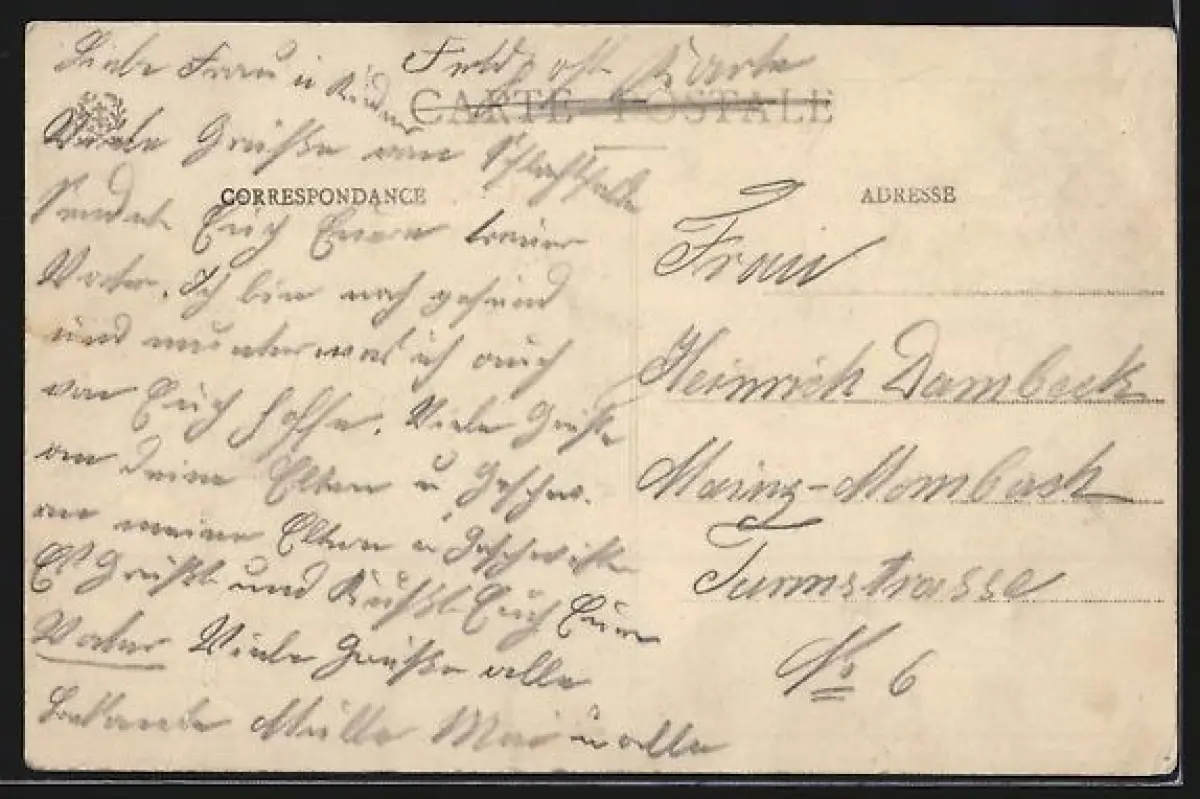 Feldpost Karte
CARTE POSTALE
CORRESPONDANCE
ADRESSE
Liebe Frau u Kinder
Viele Grüße vom Schlachtfelde
Sendet Euch Euern treuer
Vater. Ich bin noch gesund
und munter was ich auch
von Euch hoffe. Viele Grüße
an deine Eltern u Geschw.
an meine Eltern u Geschwister
Es Grüßt und Küßt Euch Euer
Vater Viele Grüße alle
Bekannte Müller u alle
Frau
Heinrich Dambeck
Mainz-Mombach
Turmstrasse
No 6